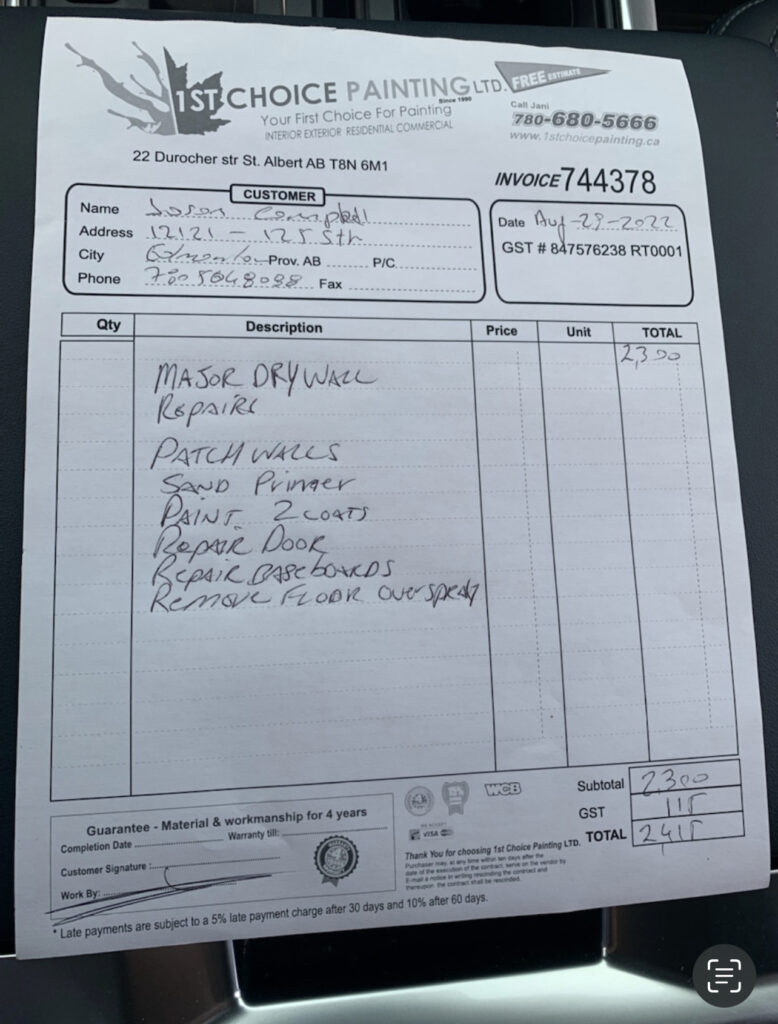 1ST CHOICE PAINTING LTD.
Since 1990
Your First Choice For Painting
INTERIOR EXTERIOR RESIDENTIAL COMMERCIAL
FREE ESTIMATE
Call Jani
780-680-5666
www.1stchoicepainting.ca
22 Durocher str St. Albert AB T8N 6M1
INVOICE 744378
CUSTOMER
Name Jason Campbell
Address 12121 - 125 Sth
City Edmonton Prov. AB P/C
Phone 780 5648088 Fax
Date Aug-29-2022
GST # 847576238 RT0001
Qty Description Price Unit TOTAL
2,300
MAJOR DRYWALL
REPAIRS
PATCH WALLS
SAND Primer
PAINT 2 COATS
REPAIR DOOR
REPAIR BASEBOARDS
REMOVE FLOOR OVERSPRAY
Guarantee - Material & workmanship for 4 years
Completion Date Warranty till:
Customer Signature :
Work By:
WCB
WE ACCEPT
VISA
Subtotal 2,300
GST 115
TOTAL 2,415
Thank You for choosing 1st Choice Painting LTD.
Purchaser may, at any time within ten days after the
date of the execution of the contract, serve on the vendor by
E-mail a notice in writing rescinding the contract and
thereupon, the contract shall be rescinded.
* Late payments are subject to a 5% late payment charge after 30 days and 10% after 60 days.